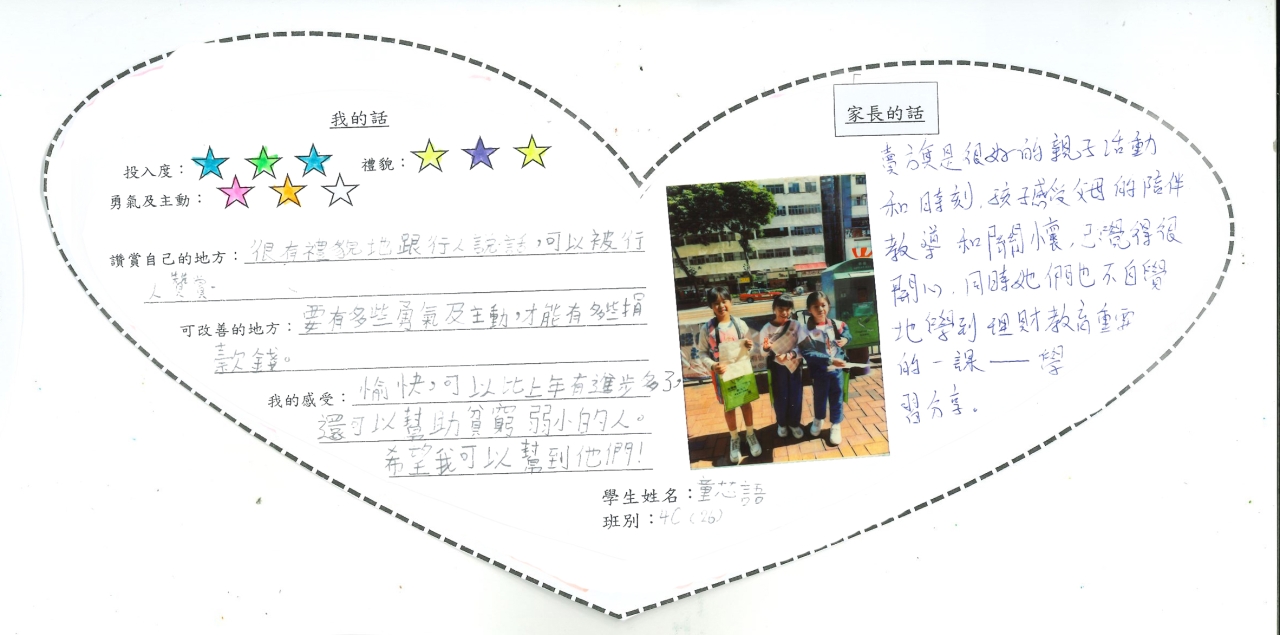 我的話
投入度：
禮貌：
勇氣及主動：
讚賞自己的地方：很有禮貌地跟行人說話，可以被行
人贊賞。
可改善的地方：要有多些勇氣及主動，才能有多些捐
款錢。
我的感受：愉快，可以比上年有進步多了，
還可以幫助貧窮弱小的人。
希望我可以幫到他們！
家長的話
賣旗是很好的親子活動
和時刻，孩子感受父母的陪伴
教導和關懷，已覺得很
開心，同時她們也不自覺
地學到理財教育重要
的一課——學
習分享。
學生姓名：童芯語
班別：4C（26）